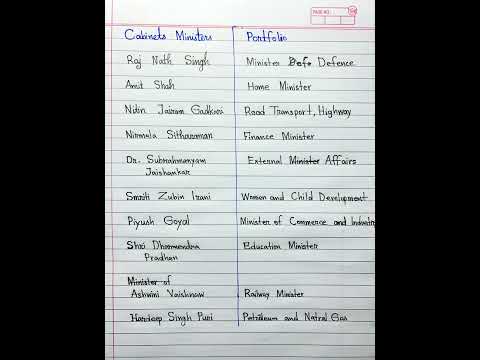 PAGE NO.
Cabinets Ministers Portfolio
Raj Nath Singh Minister Defe Defence
Amit Shah Home Minister
Nitin Jairam Gadkari Road Transport, Highway
Nirmala Sitharaman Finance Minister
Dr. Subrahmanyam External Minister Affairs
Jaishankar
Smriti Zubin Irani Women and Child Development
Piyush Goyal Minister of Commerce and Industr
Shri Dharmendra Education Minister
Pradhan
Minister of
Ashwini Vaishnaw Railway Minister
Hardeep Singh Puri Petroleum and Natral Gas